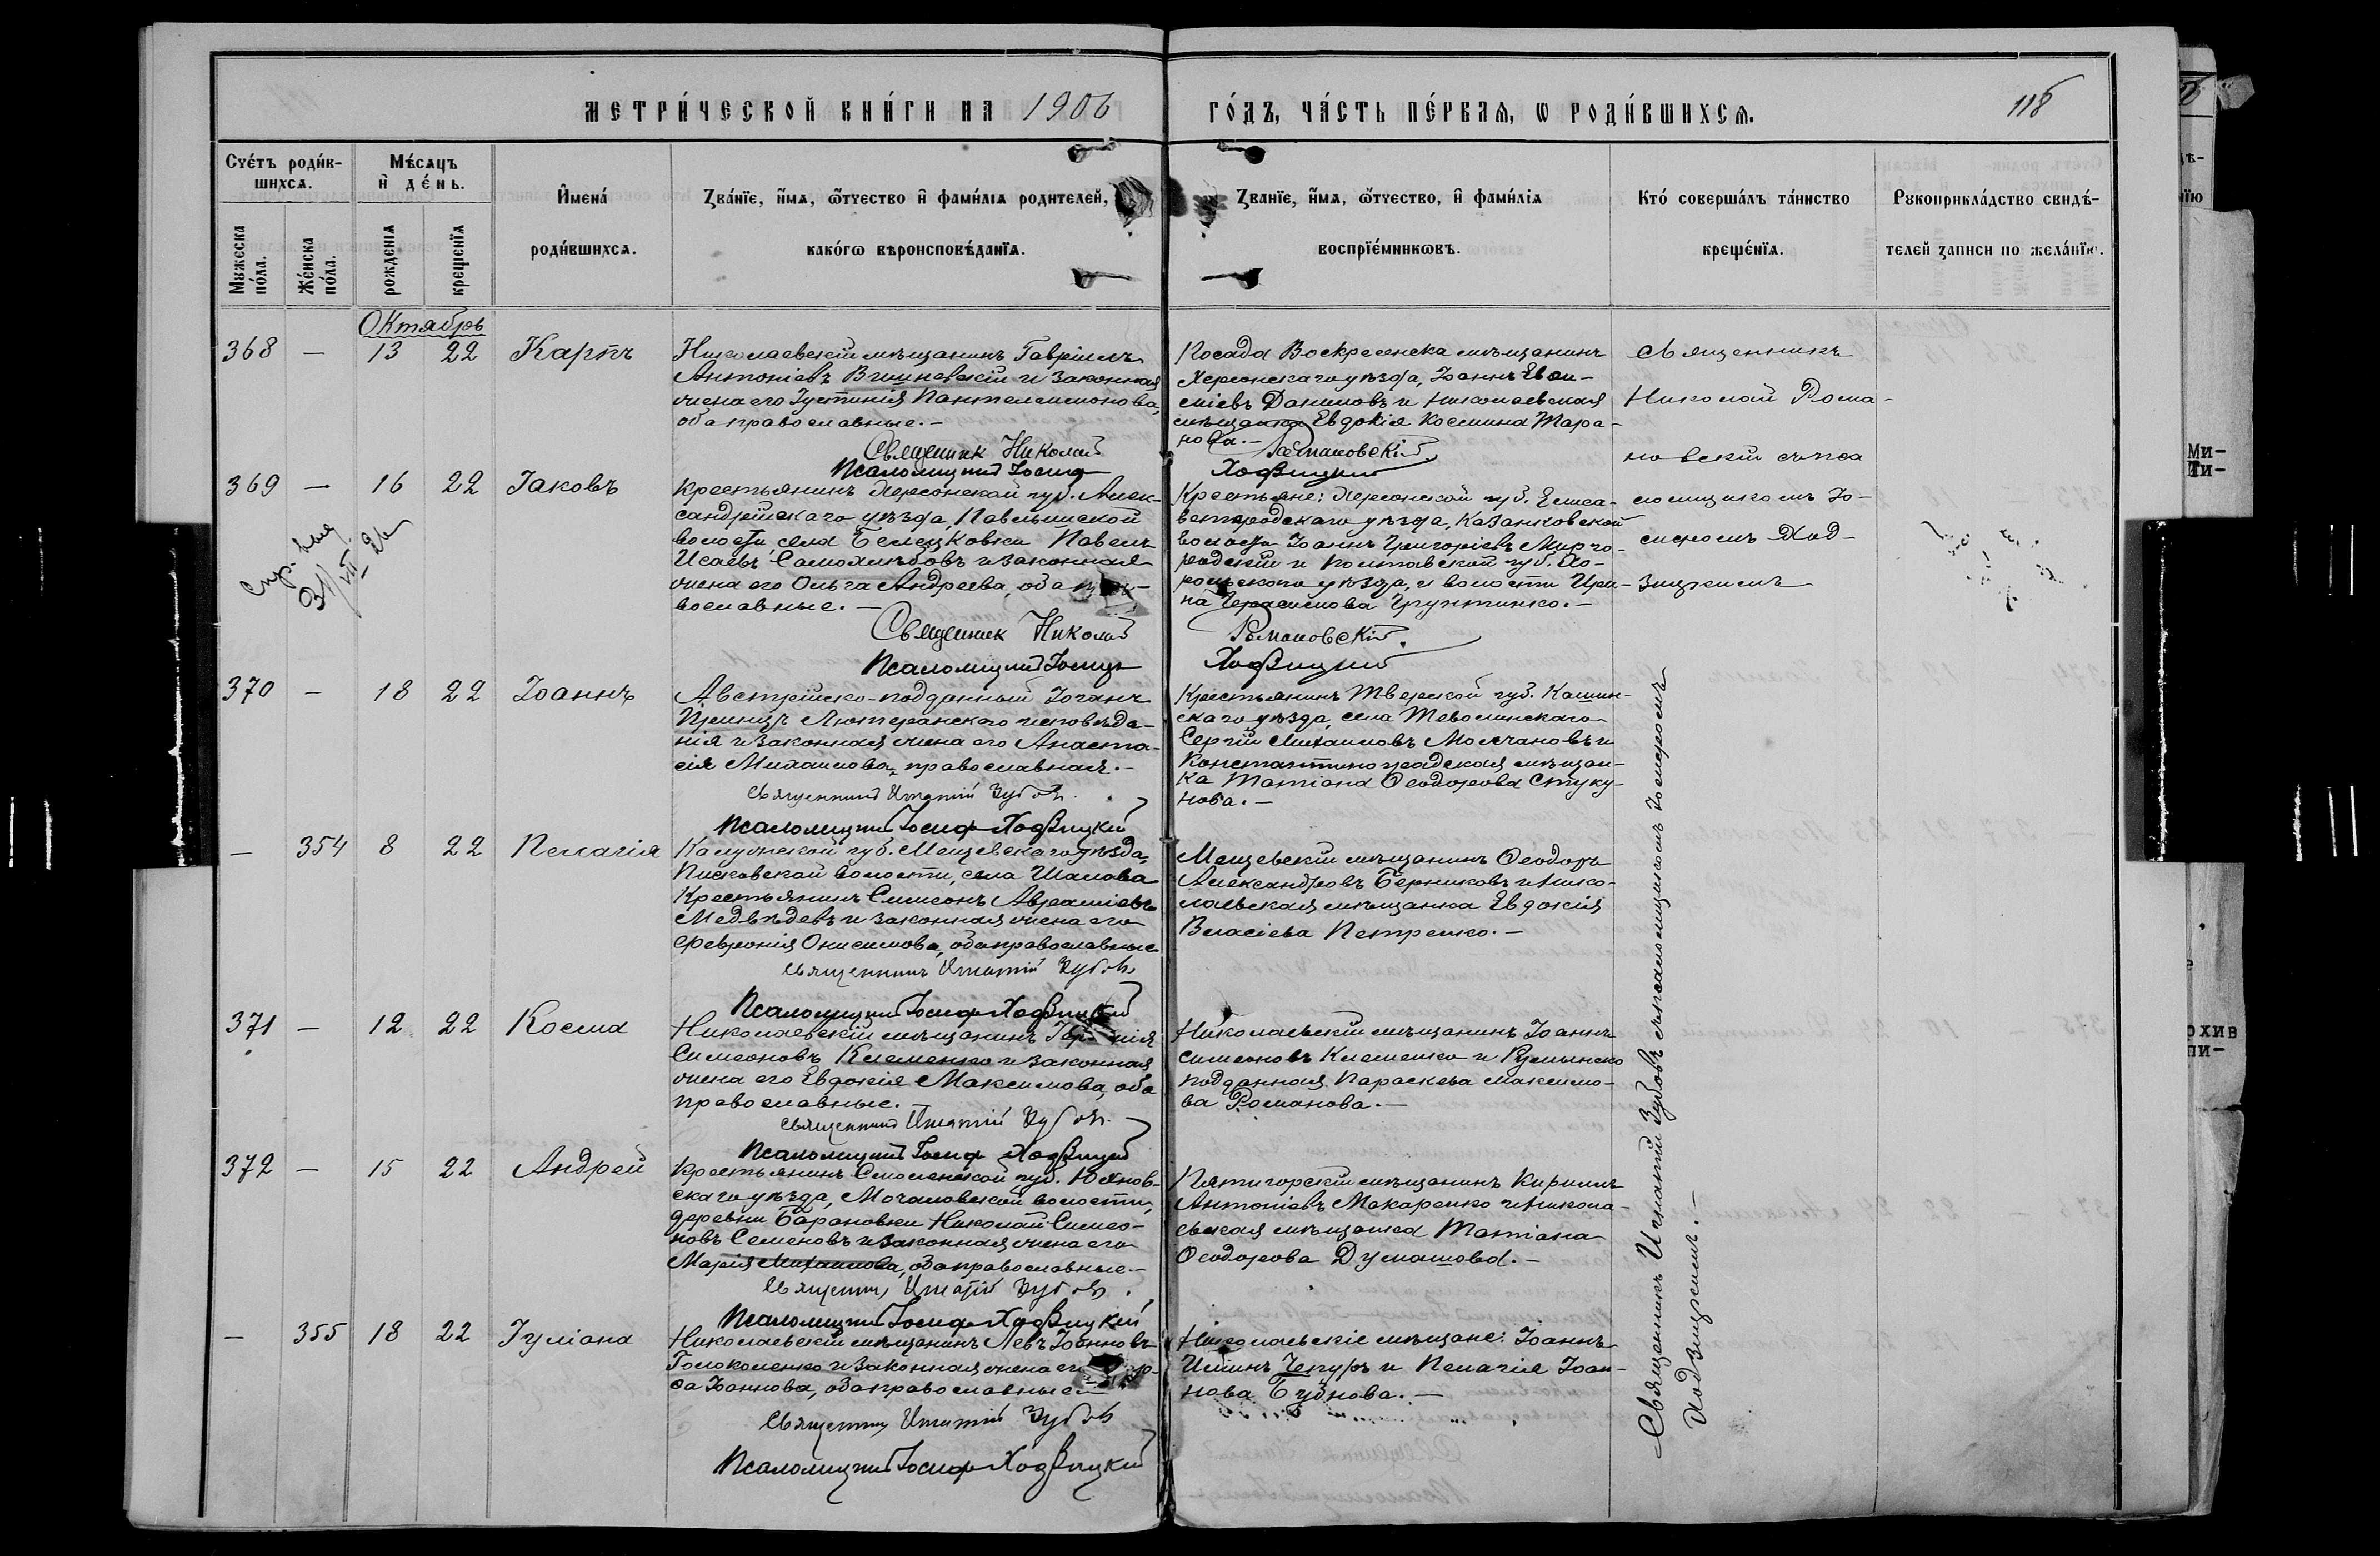 МЕТРИ́ЧЕСКОЙ КНИ́ГИ НА 1906
ГО́ДЪ, ЧА́СТЬ ПЕ́РВАѦ, Ѡ РОДИ́ВШИХСѦ.
118
Сче́тъ роди́в-
шихсѧ.
Мѣ́сѧцъ
и҆ де́нь.
Мужеска
по́ла.
Же́нска
по́ла.
рожденїѧ
крещенїѧ
И҆мена̀
роди́вшихсѧ.
Зва́нїе, и҆́мѧ, ѻ҆́тчество и҆ фами́лїѧ родителей,
како́гѡ вѣроисповѣ́данїѧ.
Зва́нїе, и҆́мѧ, ѻ҆́тчество, и҆ фами́лїѧ
воспрїе́мникѡвъ.
Кто́ соверша́лъ та́инство
креще́нїѧ.
Рукоприкла́дство свидѣ́-
телей записи по жела́нїю.
Октябрь
368 — 13 22 Карпъ
Николаевскій мѣщанинъ Гавріилъ
Антоніевъ Вишневскій и законная
жена его Іустинія Пантелеимонова,
оба православные. —
Священник Николай
Псаломщикъ Іосифъ
Посада Воскресенска мѣщанинъ
Херсонскаго уѣзда, Іоаннъ
Даниловъ и Николаевская
мѣщанка Евдокія Космина Тара-
нова. —
Романовскій
Ходзицкій
Священникъ
Николай Рома-
новскій съ пса
ломщикомъ Іо-
сифомъ Ход-
зицкимъ
369 — 16 22 Іаковъ
Крестьянинъ Херсонской губ. Алек-
сандрійскаго уѣзда, Павлышской
волости села Бѣлецковки Павелъ
Исаевъ Самохлѣбовъ и законная
жена его Ольга Андреева, оба пра-
вославные. —
Священник Николай
Псаломщикъ Іосифъ
Крестьяне: Херсонской губ. Елиса-
ветградскаго уѣзда, Казанковской
волости Іоаннъ Григоріевъ Мирго-
родскій и Полтавской губ. Хо-
рольскаго уѣзда, и волости Ири-
на Герасимова Грунтинко. —
Романовскій.
Ходзицкій
370 — 18 22 Іоаннъ
Австрійско-подданный Іоганъ
Принцъ Лютеранскаго исповѣда-
нія и законная жена его Анаста-
сія Михаилова, православная. —
Священникъ Игнатій Зубовъ.
Псаломщикъ Іосифъ Ходзицкій
Крестьянинъ Тверской губ. Кашин-
скаго уѣзда, села
Сергій Михаиловъ Молчановъ и
Константиноградская мѣщан-
ка Татіана Ѳеодорова Стуку-
нова. —
— 354 8 22 Пелагія
Калужской губ. Мещевскаго уѣзда,
волости, села Шалова
Крестьянинъ Симеонъ Авраміевъ
Медвѣдевъ и законная жена его
Февронія Онисимова, оба православные
Священникъ Игнатій Зубовъ
Псаломщикъ Іосифъ Ходзицкій
Мещевскій мѣщанинъ Ѳеодоръ
Александровъ Берниковъ и Нико-
лаевская мѣщанка Евдокія
Власіева Петренко. —
371 — 12 22 Косма
Николаевскій мѣщанинъ
Симеоновъ Клеменко и законная
жена его Евдокія Максимова, оба
православные. —
Священникъ Игнатій Зубовъ.
Псаломщикъ Іосифъ Ходзицкій
Николаевскій мѣщанинъ Іоаннъ
Симеоновъ Клеменко и Румынско
подданная Параскева Максимо-
ва Романова. —
372 — 15 22 Андрей
Крестьянинъ Смоленской губ. Юхнов-
скаго уѣзда, Мочаловской волости,
деревни Барановки Николай Симео-
новъ Семеновъ и законная жена его
Марія Михаилова, оба православные. —
Священникъ Игнатій Зубовъ.
Псаломщикъ Іосифъ Ходзицкій
Пятигорскій мѣщанинъ Кириллъ
Антоніевъ Макаренко и Никола-
евская мѣщанка Татіана
Ѳеодорова Думашова. —
— 355 18 22 Іуліана
Николаевскій мѣщанинъ Левъ Іоанновъ
Голоколенко и законная жена его
Іоаннова, оба православные —
Священникъ Игнатій Зубовъ
Псаломщикъ Іосифъ Ходзицкій
Николаевскіе мѣщане: Іоаннъ
Илiинъ Чепуръ и Пелагія Іоан-
нова Бубнова. —
Священникъ Игнатій Зубовъ съ псаломщикомъ Іосифомъ
Ходзицкимъ. —